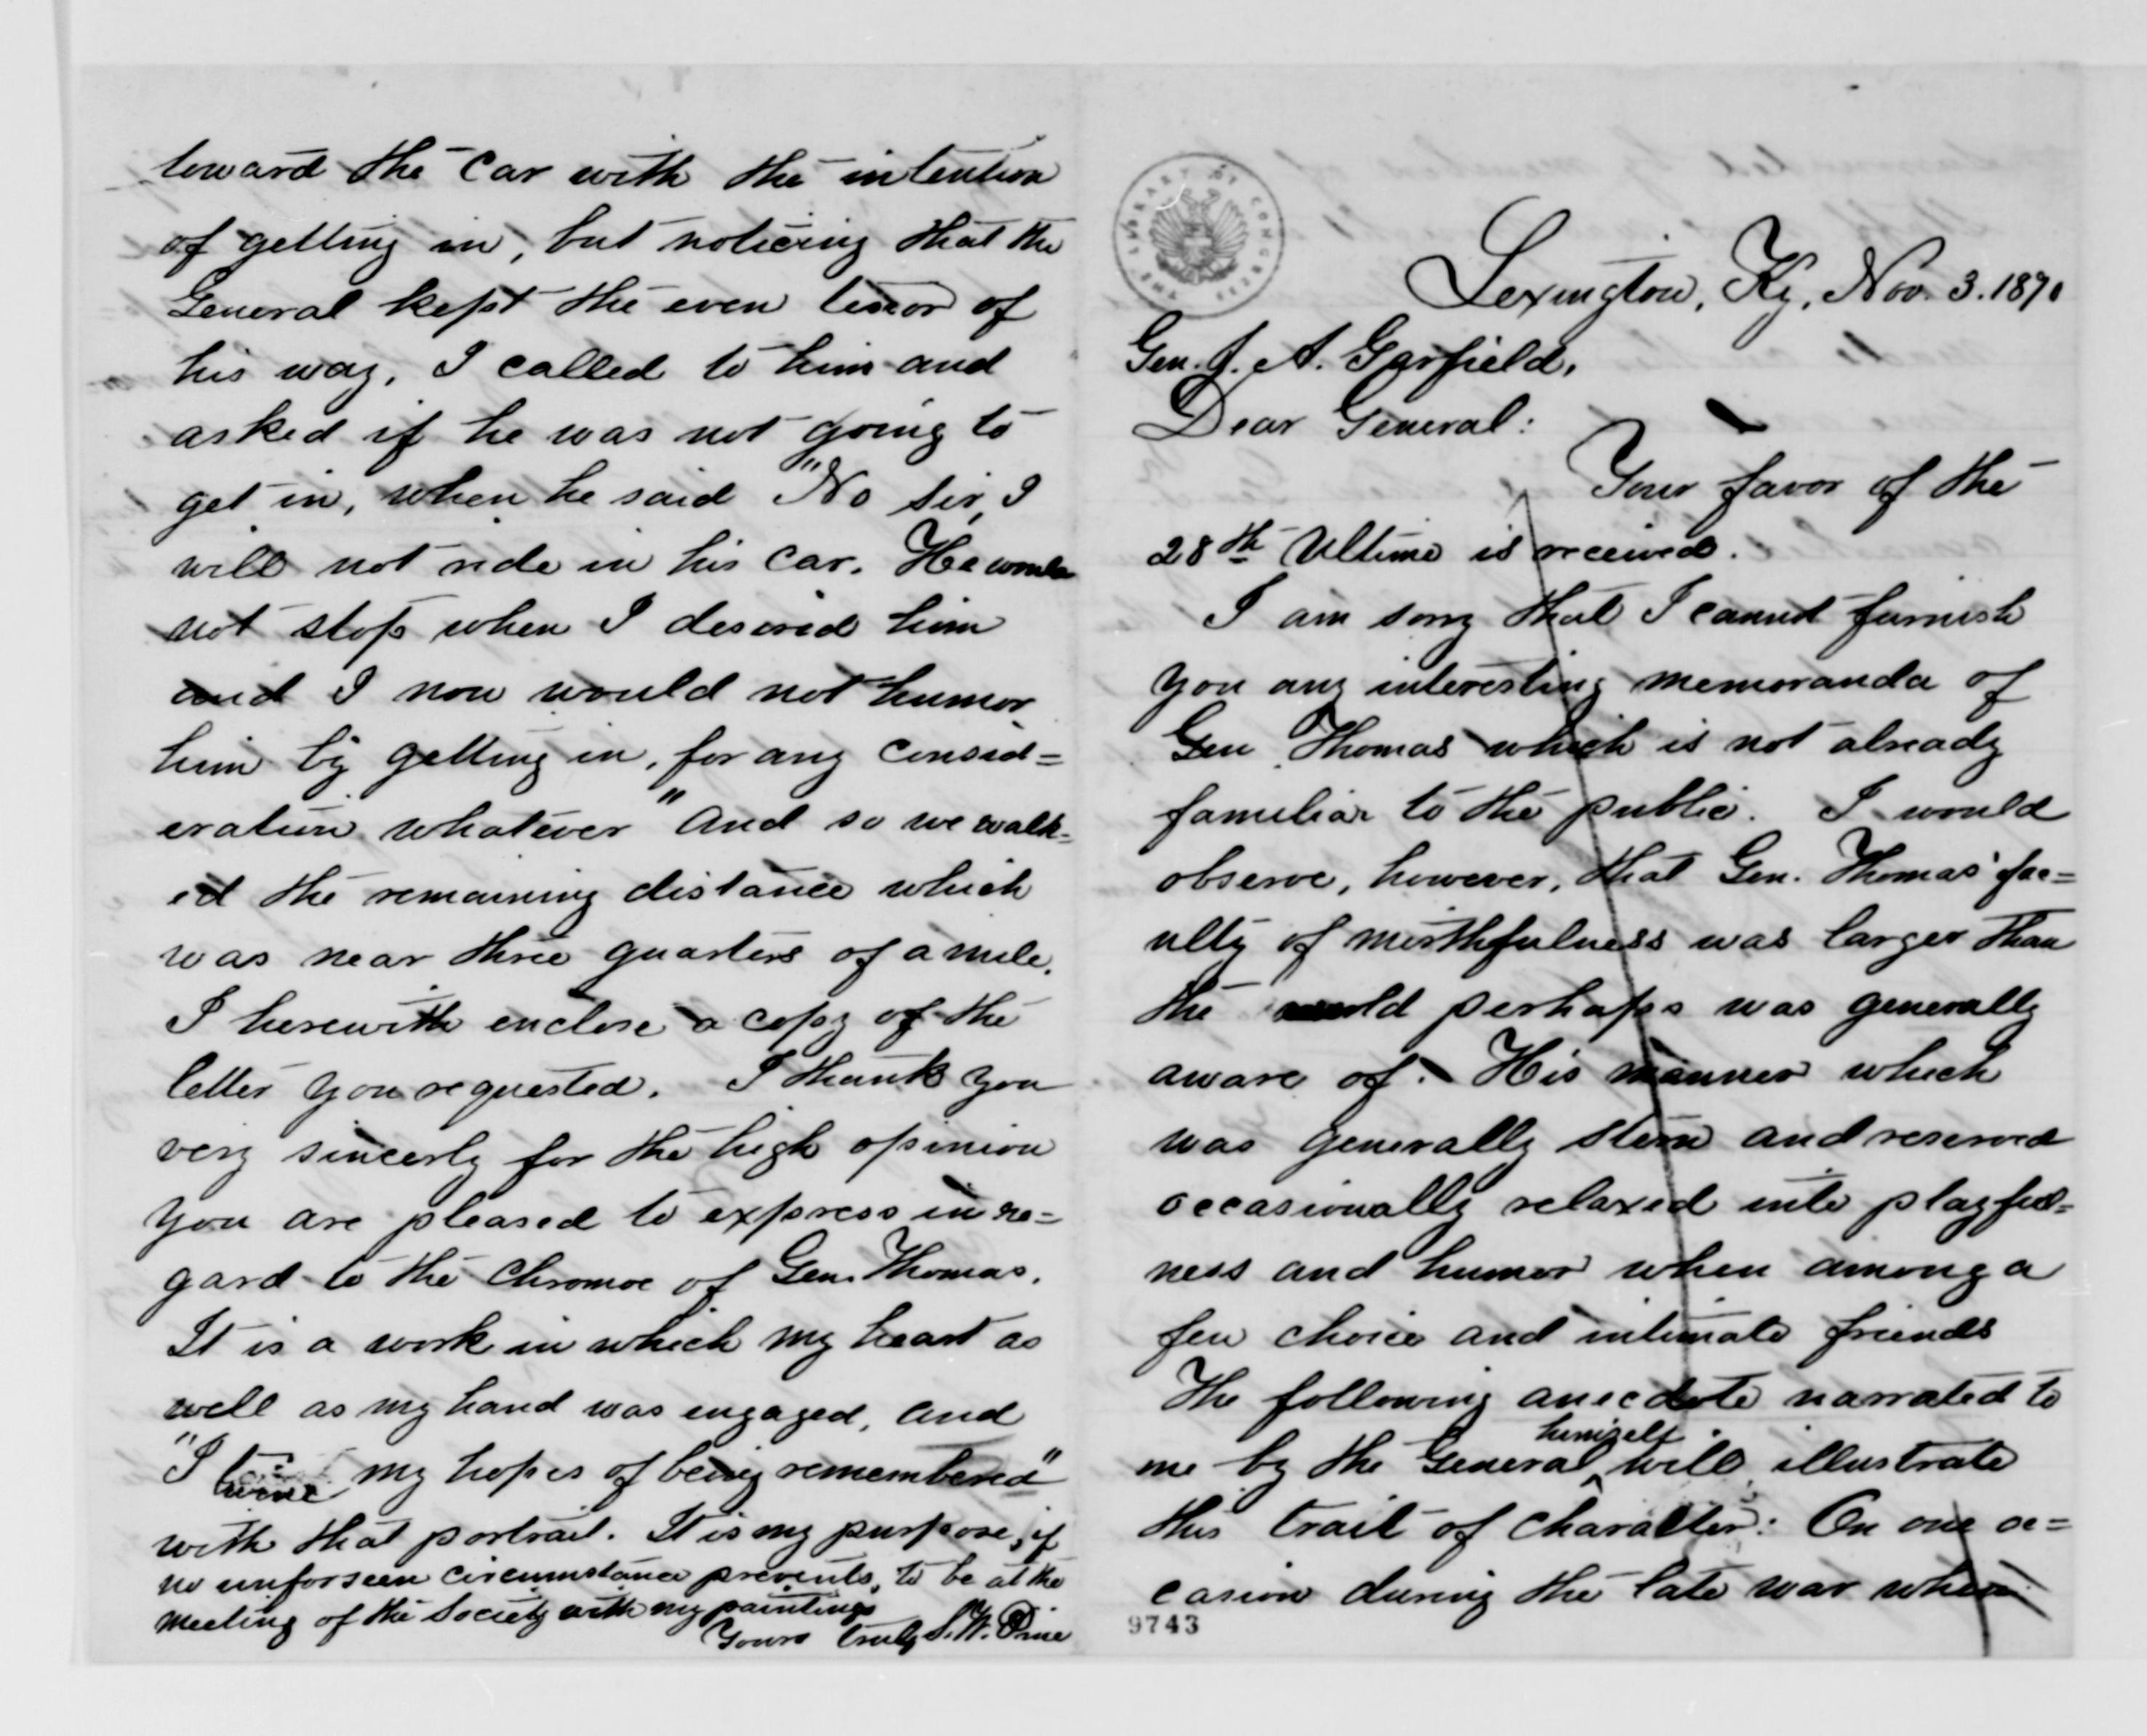 THE LIBRARY OF CONGRESS
Lexington, Ky, Nov. 3. 1870
Gen. J. A. Garfield,
Dear General:
Your favor of the
28th Ultimo is received.
I am sorry that I cannot furnish
you any interesting memoranda of
Gen Thomas which is not already
familiar to the public. I would
observe, however, that Gen. Thomas' fac=
ulty of mirthfulness was larger than
the world perhaps was generally
aware of. His manner which
was generally stern and reserved
occasionally relaxed into playful=
ness and humor when among a
few choice and intimate friends
The following anecdote narrated to
himself
me by the General will illustrate
this trait of character: On one oc=
casion during the late war when
9743
toward the car with the intention
of getting in, but noticing that the
General kept the even tenor of
his way, I called to him and
asked if he was not going to
get in, when he said "No sir, I
will not ride in his car. He would
not stop when I desired him
and I now would not humor
him by getting in, for any consid=
eration whatever" And so we walk=
ed the remaining distance which
was near three quarters of a mile.
I herewith enclose a copy of the
letter you requested. I thank you
very sincerly for the high opinion
you are pleased to express in re=
gard to the Chromoe of Gen. Thomas.
It is a work in which my heart as
well as my hand was engaged, and
"I twine my hopes of being remembered"
with that portrait. It is my purpose, if
no unforseen circumstance prevents, to be at the
meeting of the Society with my paintings
Yours truly S. W. Price